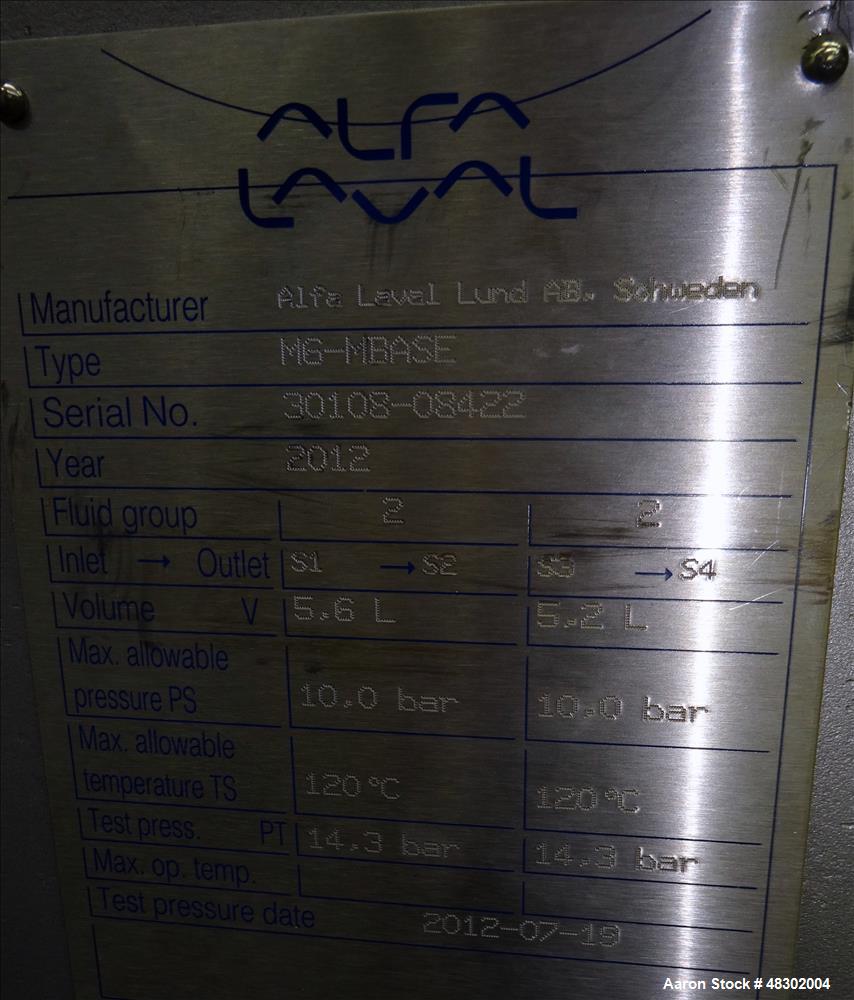 ALFA
LAVAL
Manufacturer Alfa Laval Lund AB. Schweden
Type MG-MBASE
Serial No. 30108-08422
Year 2012
Fluid group 2 2
Inlet → Outlet S1 → S2 S3 → S4
Volume V 5.6 L 5.2 L
Max. allowable
pressure PS 10.0 bar 10.0 bar
Max. allowable
temperature TS 120°C 120°C
Test press. PT 14.3 bar 14.3 bar
Max. op. temp.
Test pressure date 2012-07-19
Aaron Stock # 48302004